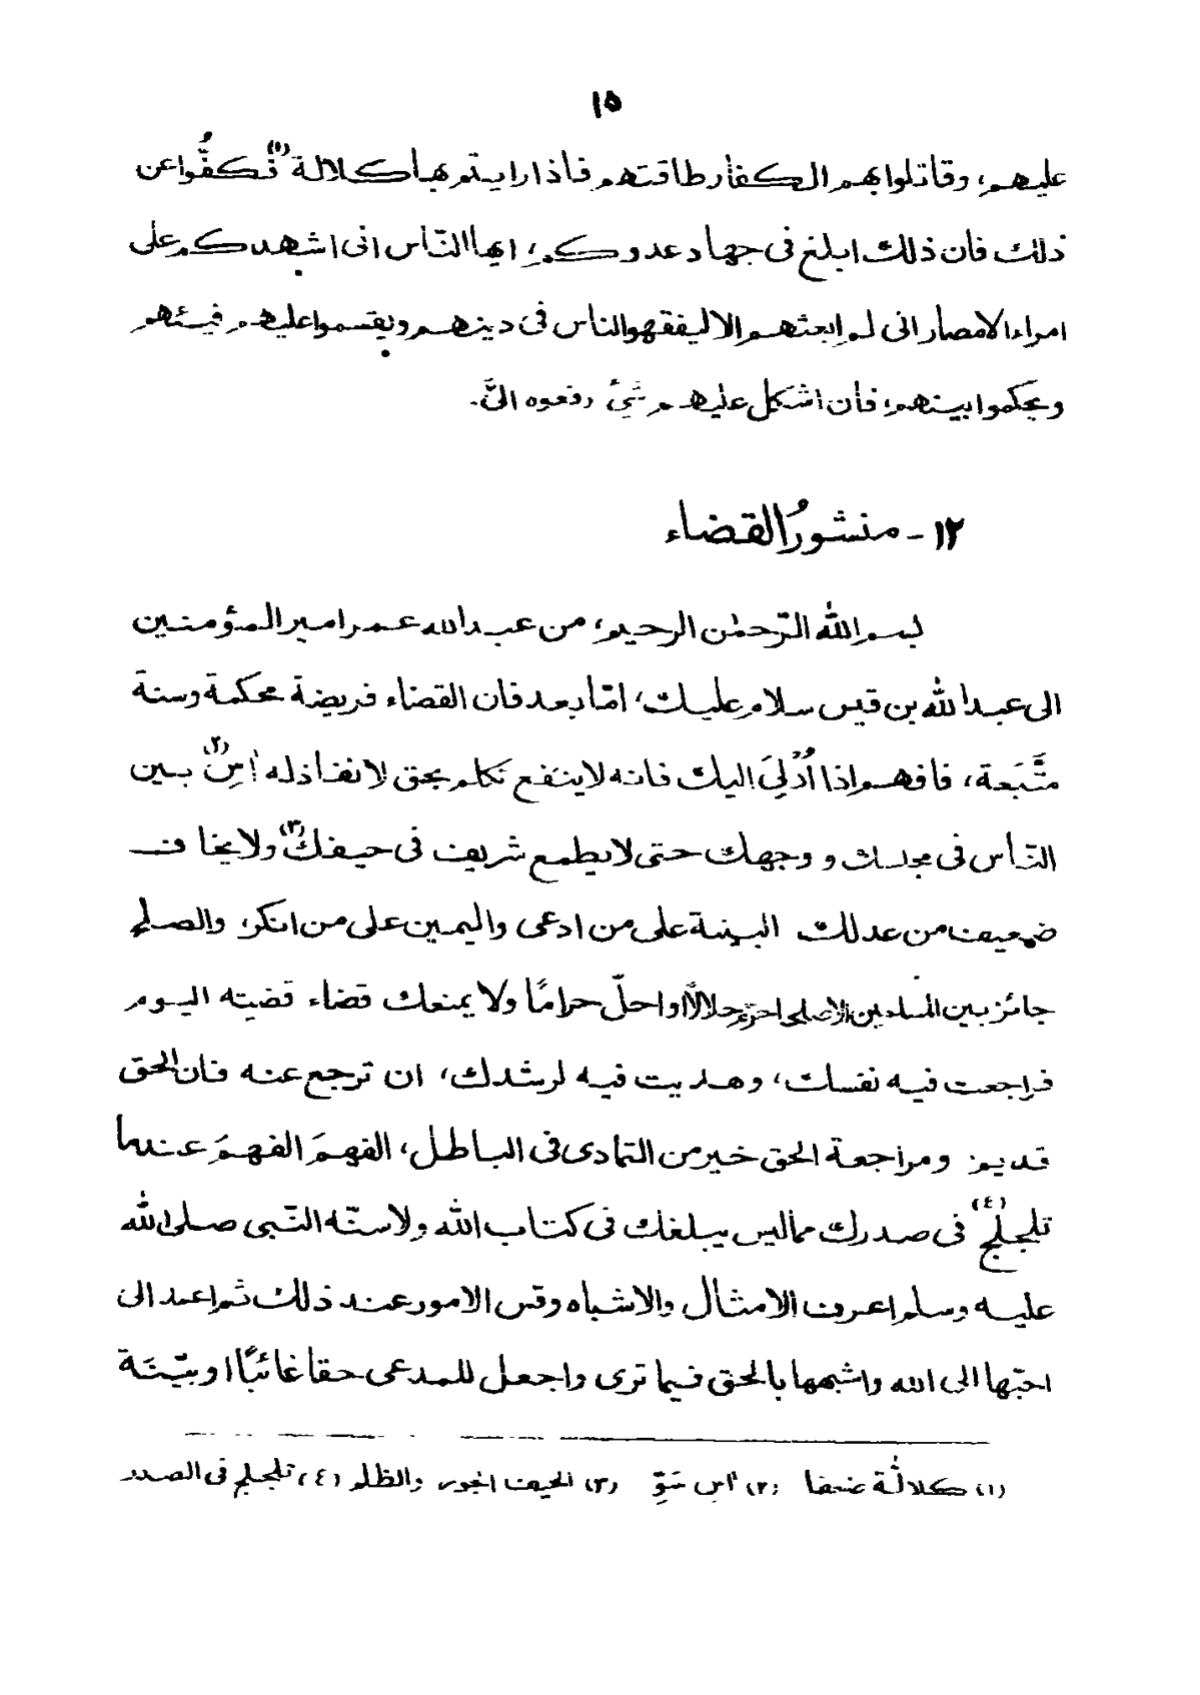 ١٥
عليهم، وقاتلوا بهم الكفار طاقتهم فاذا رايتم بها كلالة (١) فكفُّوا عن
ذلك فان ذلك ابلغ فى جهاد عدوكم، ايها النّاس انى اشهدكم على
امراء الامصار انى لم ابعثهم الا ليفقهوا الناس فى دينهم ويقسموا عليهم فيئهم
ويحكموا بينهم، فان اشكل عليهم شئ رفعوه الىَّ.
١٢ - منشورُ القضاء
بسم الله الرّحمٰن الرحيم، من عبد الله عمر امير المؤمنين
الى عبد الله بن قيس سلام عليك، امّا بعد فان القضاء فريضة محكمة وسنة
متَّبَعة، فافهم اذا اُدْلِىَ اليك فانه لا ينفع تكلم بحق لا نفاذ له اٰسِ (٢) بين
النّاس فى مجلسك و وجهك حتى لا يطمع شريف فى حيفك (٣) ولا يخاف
ضعيف من عدلك البينة على من ادعى واليمين على من انكر، والصلح
جائز بين المسلمين الا صلحا حرّم حلالًا او احلّ حرامًا ولا يمنعك قضاء قضيته اليوم
فراجعت فيه نفسك، وهديت فيه لرشدك، ان ترجع عنه فان الحق
قديم ومراجعة الحق خير من التمادى فى الباطل، الفهمَ الفهمَ عندما
تلجلج (٤) فى صدرك مما ليس يبلغك فى كتاب الله ولا سنّة النّبى صلى الله
عليه وسلم اعرف الامثال والاشباه وقس الامور عند ذلك ثم اعمد الى
احبّها الى الله واشبهها بالحق فيما ترى واجعل للمدعى حقا غائبًا او بيّنَة
(١) كلالة ضعفا (٢) اٰسِ سَوِّ (٣) الحيف الجور والظلم (٤) تلجلج فى الصدر